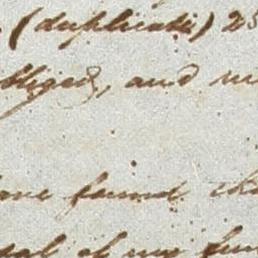 (duplicate) 25
obliged, and
have found
of my